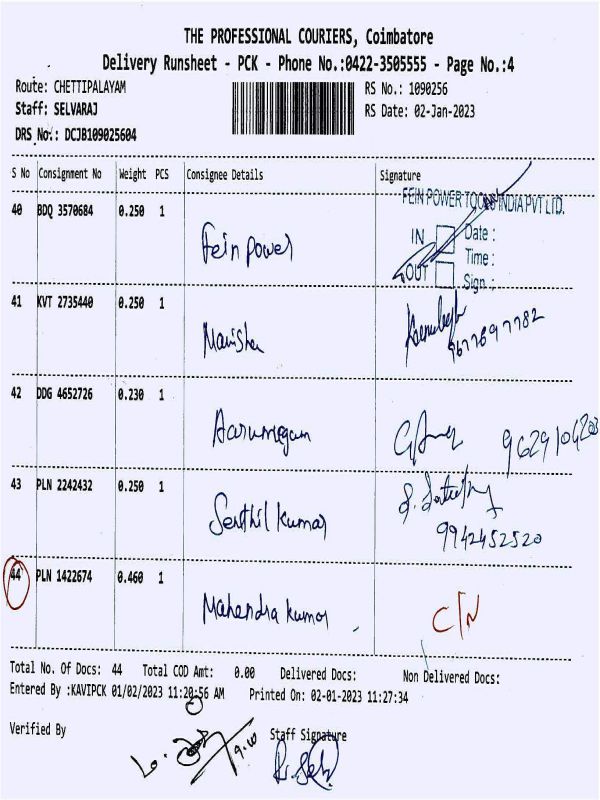 THE PROFESSIONAL COURIERS, Coimbatore
Delivery Runsheet - PCK - Phone No.:0422-3505555 - Page No.:4
Route: CHETTIPALAYAM RS No.: 1090256
Staff: SELVARAJ RS Date: 02-Jan-2023
DRS No.: DCJB109025604
S No Consignment No Weight PCS Consignee Details Signature
FEIN POWER TOOLS INDIA PVT LTD.
40 BDQ 3570684 0.250 1 Fein power
IN Date :
Time :
OUT Sign :
41 KVT 2735440 0.250 1 Manisha
9677697782
42 DDG 4652726 0.230 1 Aarumugam
9629104203
43 PLN 2242432 0.250 1 Senthil kumar
9942452520
44 PLN 1422674 0.460 1 Mahendra kumar C/N
Total No. Of Docs: 44 Total COD Amt: 0.00 Delivered Docs: Non Delivered Docs:
Entered By :KAVIPCK 01/02/2023 11:20:56 AM Printed On: 02-01-2023 11:27:34
Verified By Staff Signature